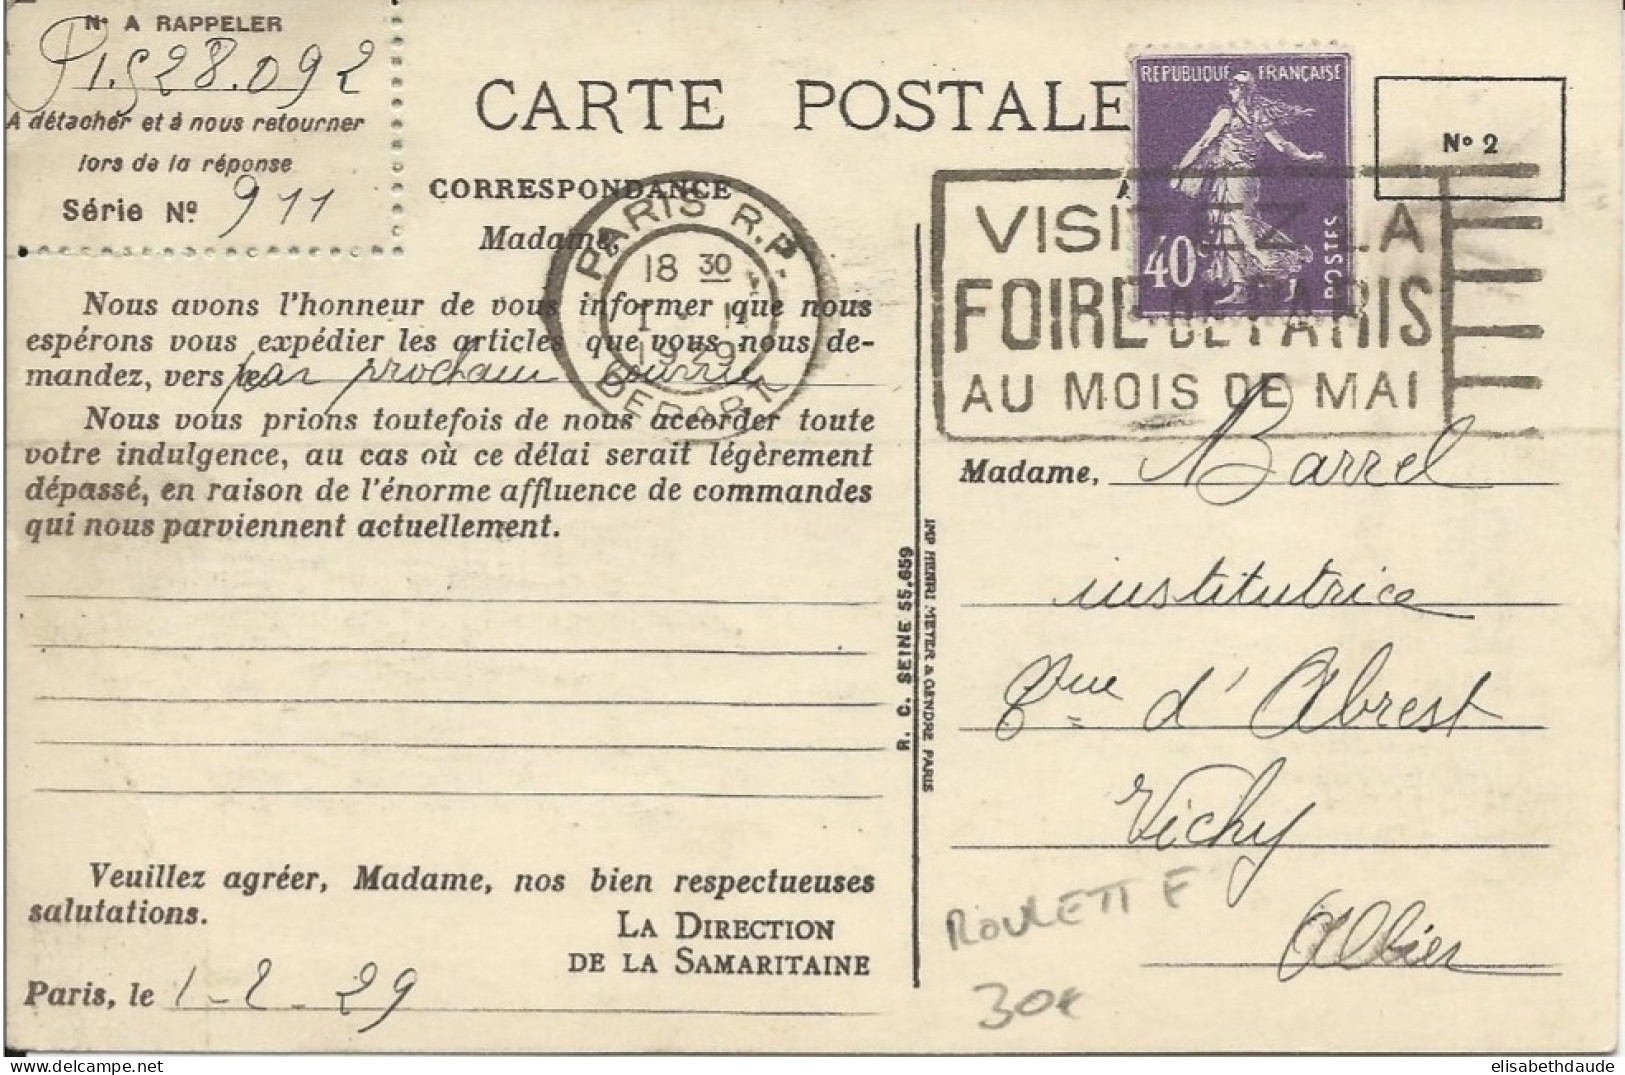 Nº A RAPPELER
P1.528.092
A détacher et à nous retourner
lors de la réponse
Série Nº 911
CARTE POSTALE
CORRESPONDANCE
REPUBLIQUE FRANÇAISE
40c
POSTES
Nº 2
PARIS R.P.
18 30
1929
DEPART
VISITEZ LA
FOIRE DE PARIS
AU MOIS DE MAI
Madame,
Nous avons l'honneur de vous informer que nous
espérons vous expédier les articles que vous nous de-
mandez, vers le par prochain courrier
Nous vous prions toutefois de nous accorder toute
votre indulgence, au cas où ce délai serait légèrement
dépassé, en raison de l'énorme affluence de commandes
qui nous parviennent actuellement.
Veuillez agréer, Madame, nos bien respectueuses
salutations.
LA DIRECTION
DE LA SAMARITAINE
Paris, le 1-2-29
R. C. SEINE 55.659
IMP HENRI MEYER & GENDRE PARIS
Madame, Barrel
institutrice
rue d'Abrest
Vichy
Allier
ROULETTE
30€
elisabethdaude